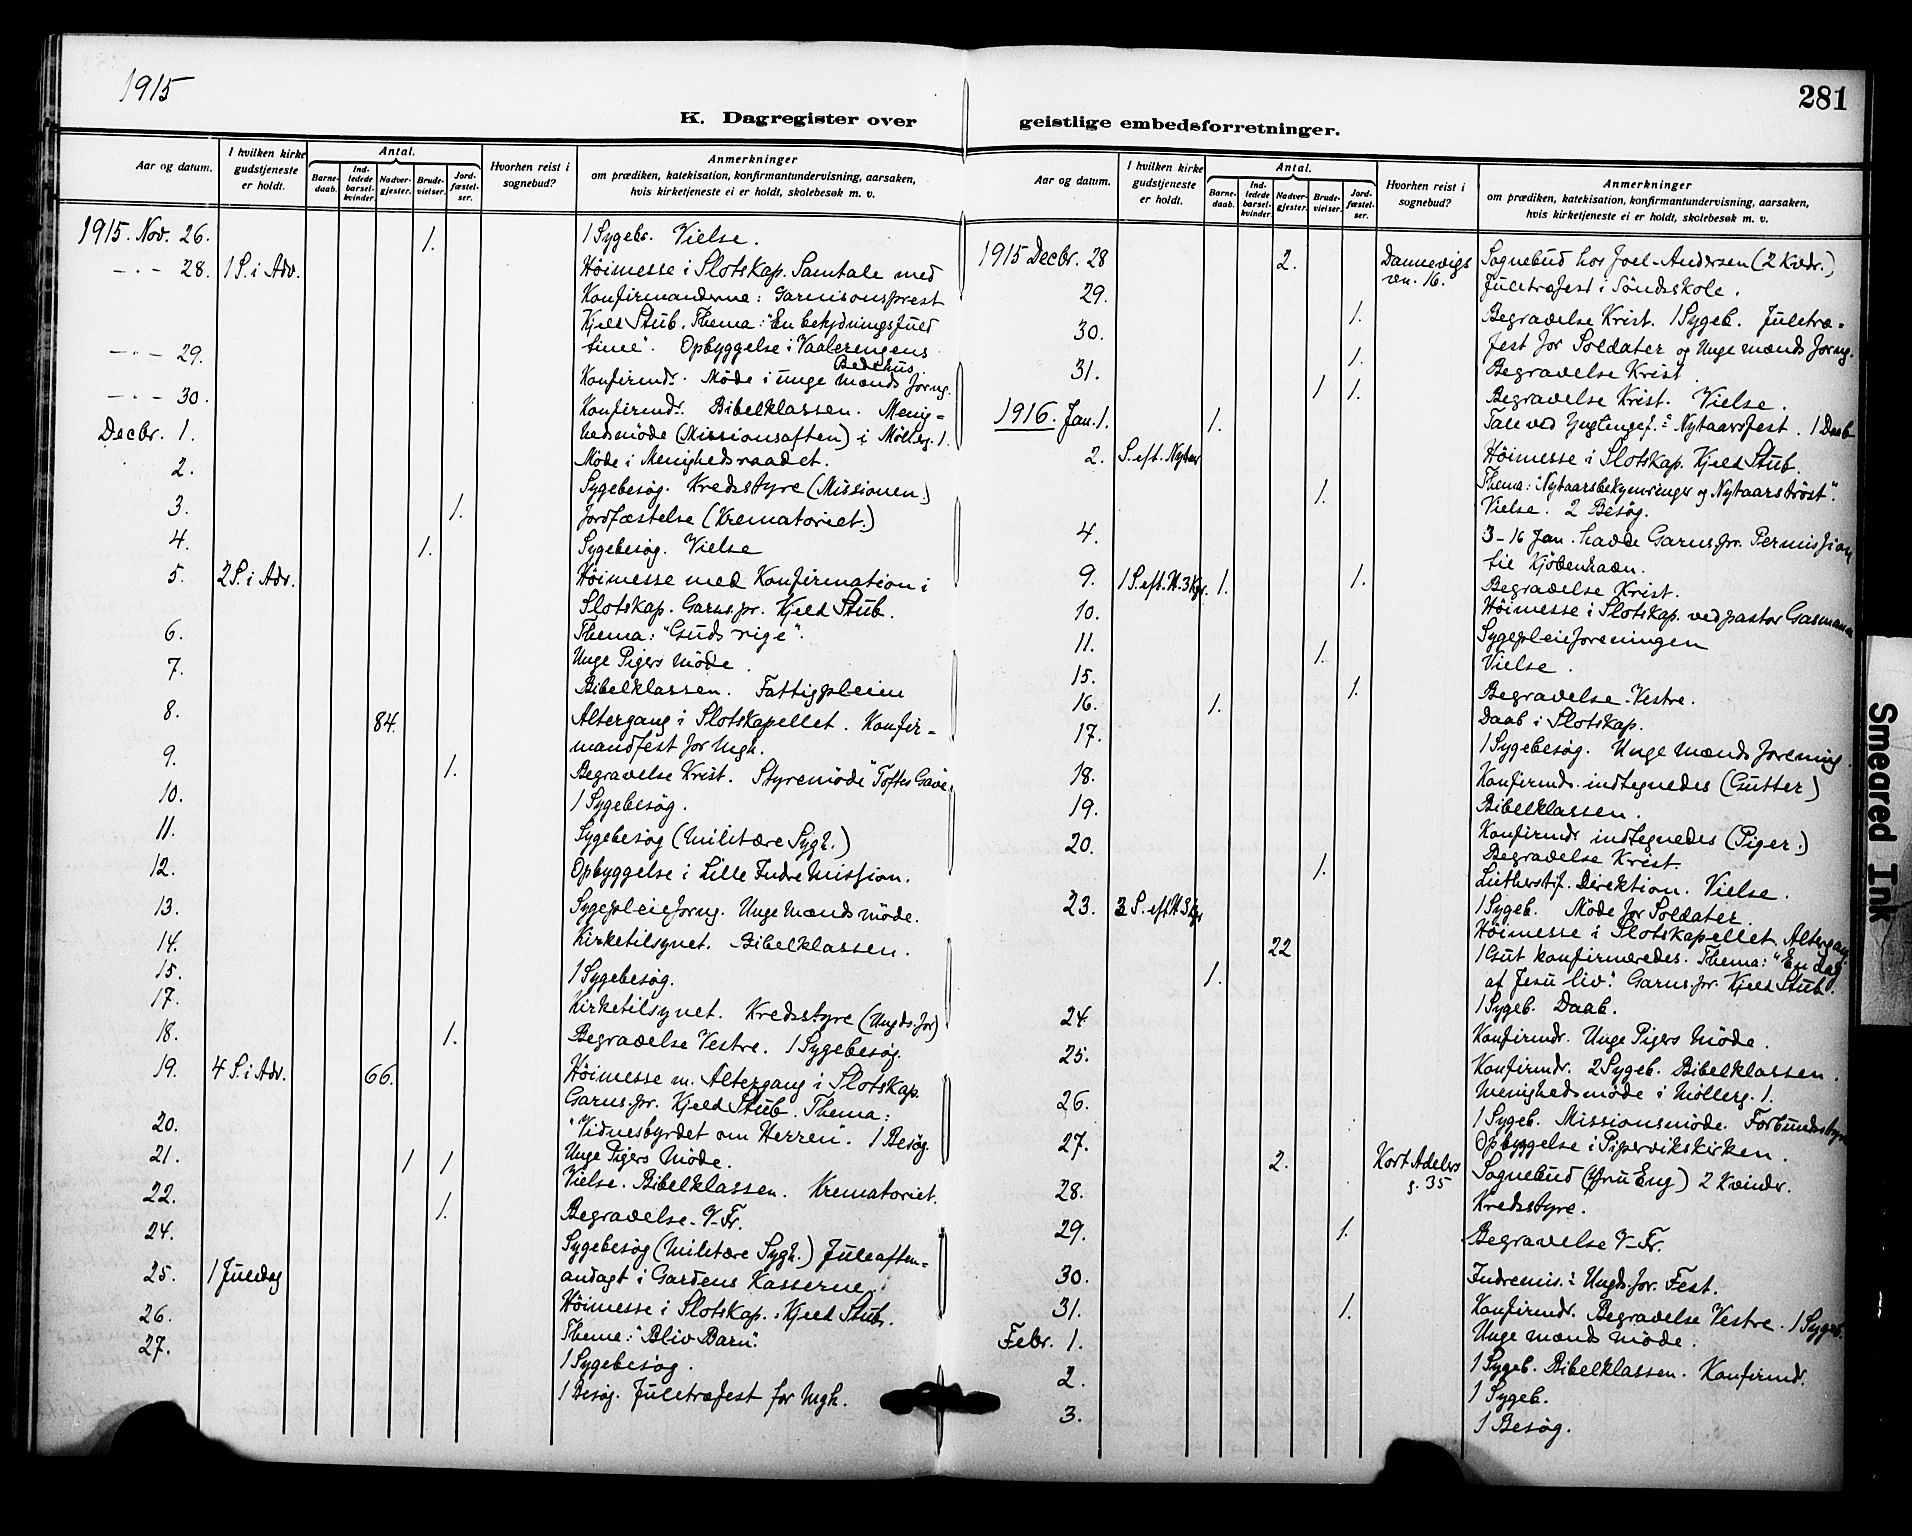 1915
281
K. Dagregister over geistlige embedsforretninger.
Aar og datum.
I hvilken kirke gudstjeneste er holdt.
Antal.
Barne-daab.
Ind-ledede barsel-kvinder.
Nadver-gjester.
Brude-vielser.
Jord-fæstel-ser.
Hvorhen reist i sognebud?
Anmerkninger
om prædiken, katekisation, konfirmantundervisning, aarsaken,
hvis kirketjeneste ei er holdt, skolebesøk m. v.
1915. Nov. 26. 1. 1 Sygebs. Vielse.
-"- 28. 1 S. i Adv. Höimesse i Slotskap. Samtale med
Konfirmanderne: Garnisonsprest
Kjeld Stub. Thema: "En betydningsfuld
time". Opbyggelse i Vaalerengens
Bedehus.
-"- 29. Konfirmdr. Möde i unge Mænds Forng.
-"- 30. Konfirmdr. Bibelklassen. Menig-
Decbr. 1. hedsmöde (Missionsaften) i Möllerg. 1.
2. Möde i Menighedsraadet.
Sygebesög. Kredsstyre (Missionen.)
3. 1. Jordfæstelse (Krematoriet.)
4. 1. Sygebesög. Vielse
5. 2 S. i Adv. Höimesse med Konfirmation i
Slotskap. Garns.pr. Kjeld Stub.
Thema: "Guds rige".
6. Unge Pigers Möde.
7. Bibelklassen. Fattigpleien
8. 84. Altergang i Slotskapellet. Konfir-
mandfest for Ungh.
9. 1. Begravelse Krist. Styremöde "Toftes Gave
10. 1 Sygebesög.
11. Sygebesög (Militære Sygh.)
12. Opbyggelse i Lille Indre Mission.
13. Sygepleieforng. Unge Mænds Möde.
14. Kirketilsynet. Bibelklassen.
15. 1 Sygebesög.
17. Kirketilsynet. Kredsstyre (Ungds. for)
18. 1. Begravelse Vestre. 1 Sygebesög.
19. 4 S. i Adv. 66. Höimesse m. Altergang i Slotskap.
Garns.pr. Kjeld Stub. Thema:
"Vidnesbyrdet om Herren". 1 Besög.
20. Unge Pigers Möde.
21. 1 1 Vielse. Bibelklassen. Krematoriet.
22. 1. Begravelse V-Fr.
24. Sygebesög (Militære Sygh.) Juleaften-
andagt i Gardens Kasserne.
25. 1 Juledag Höimesse i Slotskap. Kjeld Stub.
Thema: "Bliv Barn".
26. 1 Sygebesög.
27. 1 Besög. Juletræfest for Ungh.
Aar og datum.
I hvilken kirke gudstjeneste er holdt.
Antal.
Barne-daab.
Ind-ledede barsel-kvinder.
Nadver-gjester.
Brude-vielser.
Jord-fæstel-ser.
Hvorhen reist i sognebud?
Anmerkninger
om prædiken, katekisation, konfirmantundervisning, aarsaken,
hvis kirketjeneste ei er holdt, skolebesøk m. v.
1915 Decbr. 28 2. Dannevigs Sognebud hos Joel-Andersen (2 Kvdr.)
vn. 16.
29. Juletræfest i Söndsskole.
30. 1. Begravelse Krist. 1 Sygeb. Juletræ-
fest for Soldater og Unge Mænds Forng.
31. 1. Begravelse Krist
1 1. Begravelse Krist. Vielse.
1916. Jan. 1. 1. Tale ved Nytaarsfest. 1 Daab
2. S. eft. Nytaar Höimesse i Slotskap. Kjeld Stub.
Thema: "Nytaarsbekymringer og Nytaarströst".
1. Vielse. 2 Besög.
4. 3-16 Jan. havde Garns.pr. Permission
til Kjöbenhavn.
1. Begravelse Krist.
9. 1 S. eft. H. 3 Kgr. 1. Höimesse i Slotskap. ved pastor Gasmann
10. Sygepleieforeningen
11. 1. Vielse.
15. 1. Begravelse. Vestre.
16. 1. Daab i Slotskap.
17. 1 Sygebesög. Unge Mænds Forening.
18. Konfirmds. indtegnedes (Gutter)
19. Bibelklassen.
20. Konfirmdr indtegnedes (Piger.)
Begravelse Krist.
1. Lutherstif. Direktion. Vielse.
1 Sygeb. Möde for Soldater.
23. 3 S. eft. H. 3 Kgr 22 Höimesse i Slotskapellet. Altergang
1 Gut konfirmeredes. Thema: "En dag
af Jesu liv". Garns.pr. Kjeld Stub.
1. 1 Sygeb. Daab.
24. Konfirmdr. Unge Pigers Möde.
25. Konfirmdr. 2 Sygeb. Bibelklassen.
26. Menighedsmöde i Möllerg. 1.
1 Sygeb. Missionsmöde. Forbundsstyre
27. Opbyggelse i Pipervikskirken.
2. Kort Adelers Sognebud (Fru Eng) 2 Kvindr.
g. 35
28. Kredsstyre.
29. 1. Begravelse V-Fr.
30. Indremis. Ungds.for. Fest.
31. 1. Konfirmdr. Begravelse Vestre. 1 Sygeb.
Unge Mænds Möde.
Febr. 1. 1 Sygeb. Bibelklassen. Konfirmdr.
2. 1 Sygeb.
3. 1 Besög.
Smeared Ink